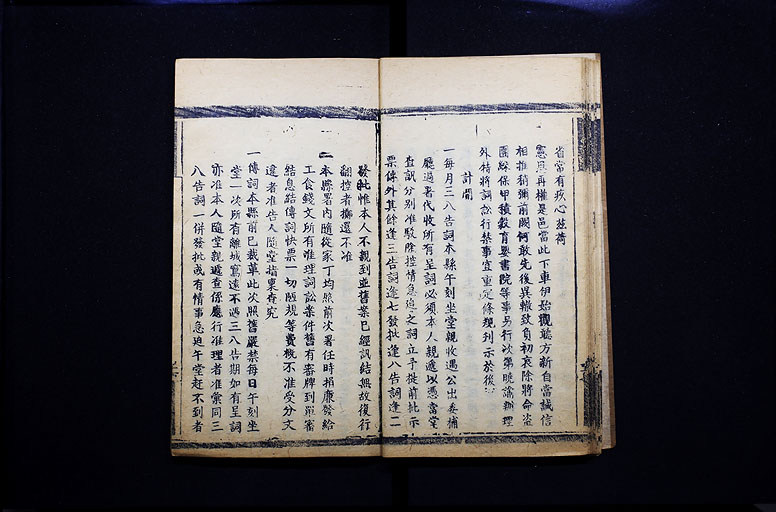 省常有疚心茲荷
憲恩再權是邑當此下車伊始觀聽方新自當誠信
相推稍彌前闕何敢先後異轍致負初衷除將命盜
團練保甲積穀育嬰書院等事另行次第曉諭辦理
外特將詞訟行禁事宜重定條規列示於後
計開
一每月三八告詞本縣午刻坐堂親收遇公出委補
廳過署代收所有呈詞必須本人親遞以憑當堂
查訊分別准駁除控情急迫之詞立予提前批示
票傳外其餘逢三告詞逢七發批逢八告詞逢二
發批惟本人不親到並舊案已經訊結無故復行
翻控者擲還不准
一本縣署內隨從家丁均照前次署任時捐廉發給
工食錢文所有准理詞訟案件舊有審牌到單審
結息結傳詞快票一切陋規等費概不准受分文
違者准告人隨堂指稟查究
一傳詞本縣前已裁革此次照舊嚴禁每日午刻坐
堂一次所有離城窵遠不遇三八告期如有呈詞
亦准本人隨堂親遞查係應行准理者准彙同三
八告詞一併發批或有情事急迫午堂趕不到者